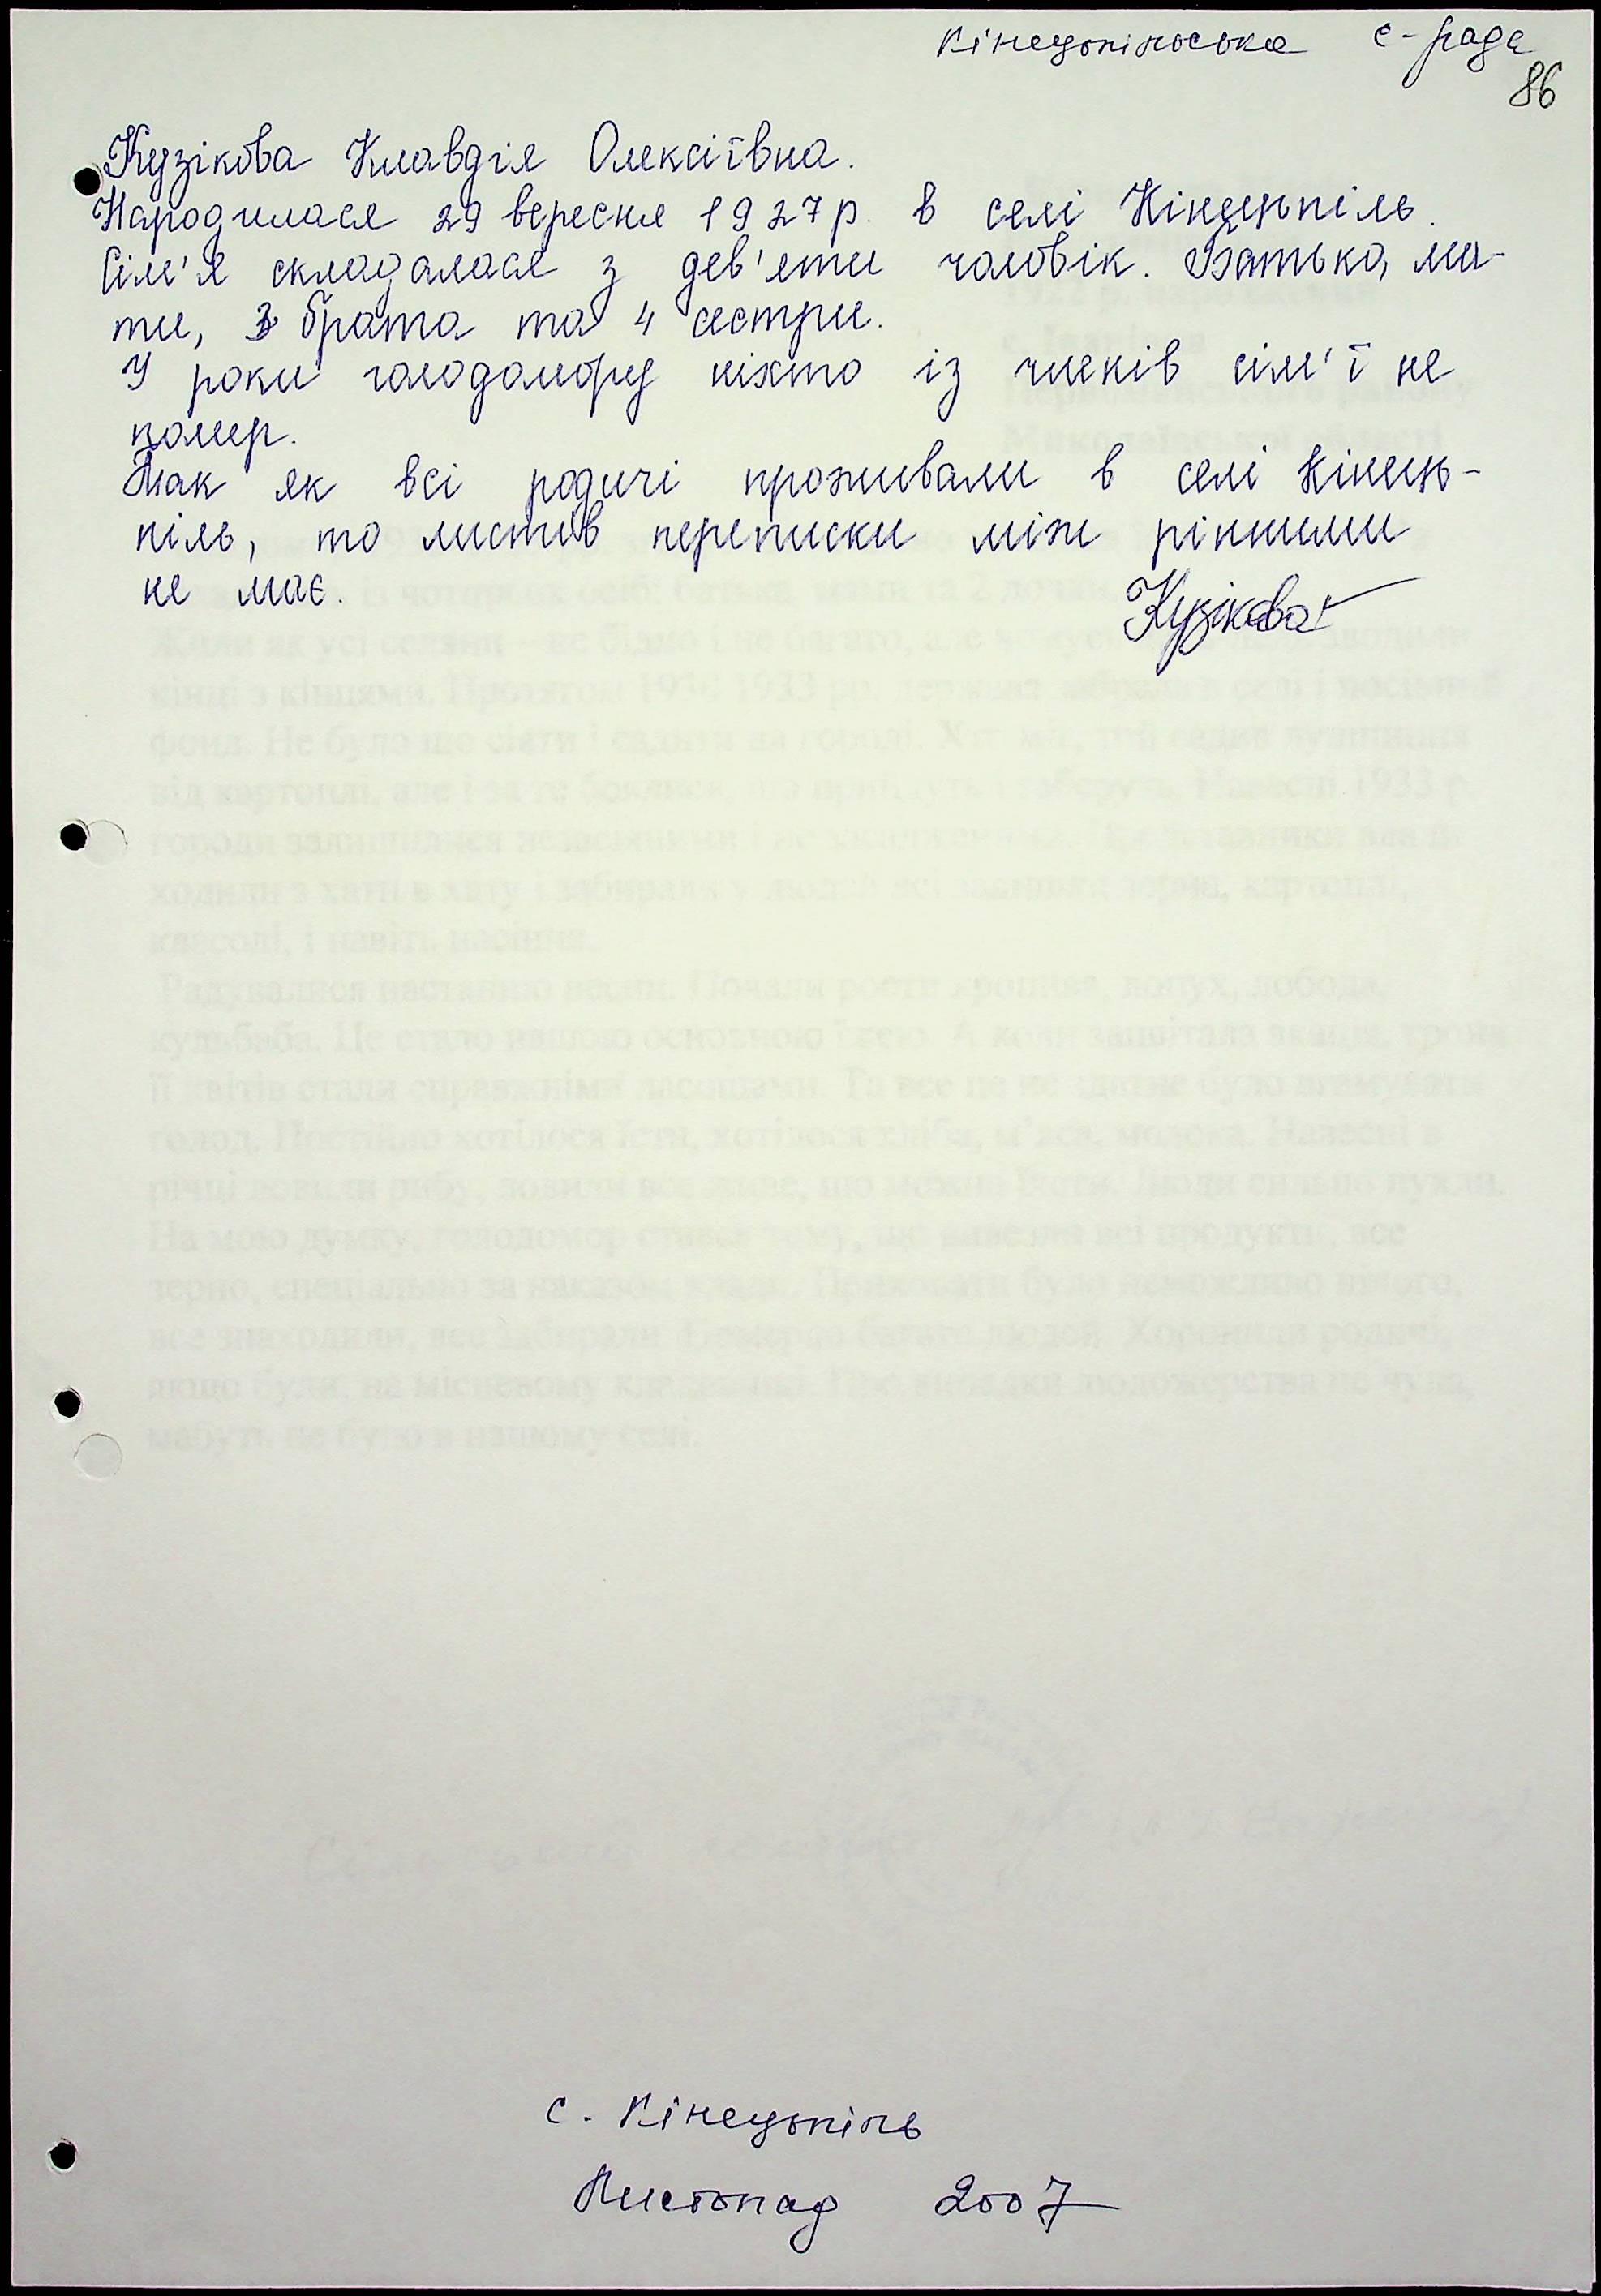 Кінецьпільська с-рада
86
Кузікова Клавдія Олексіївна.
Народилася 29 вересня 1927р. в селі Кінецьпіль.
Сім'я складалася з дев'яти чоловік. Батько, ма-
ти, 3 брата та 4 сестри.
У роки голодомору ніхто із членів сім'ї не
помер.
Так як всі родичі проживали в селі Кінець-
піль, то листів переписки між рідними
не має.
Кузікова
с. Кінецьпіль
Листопад 2007